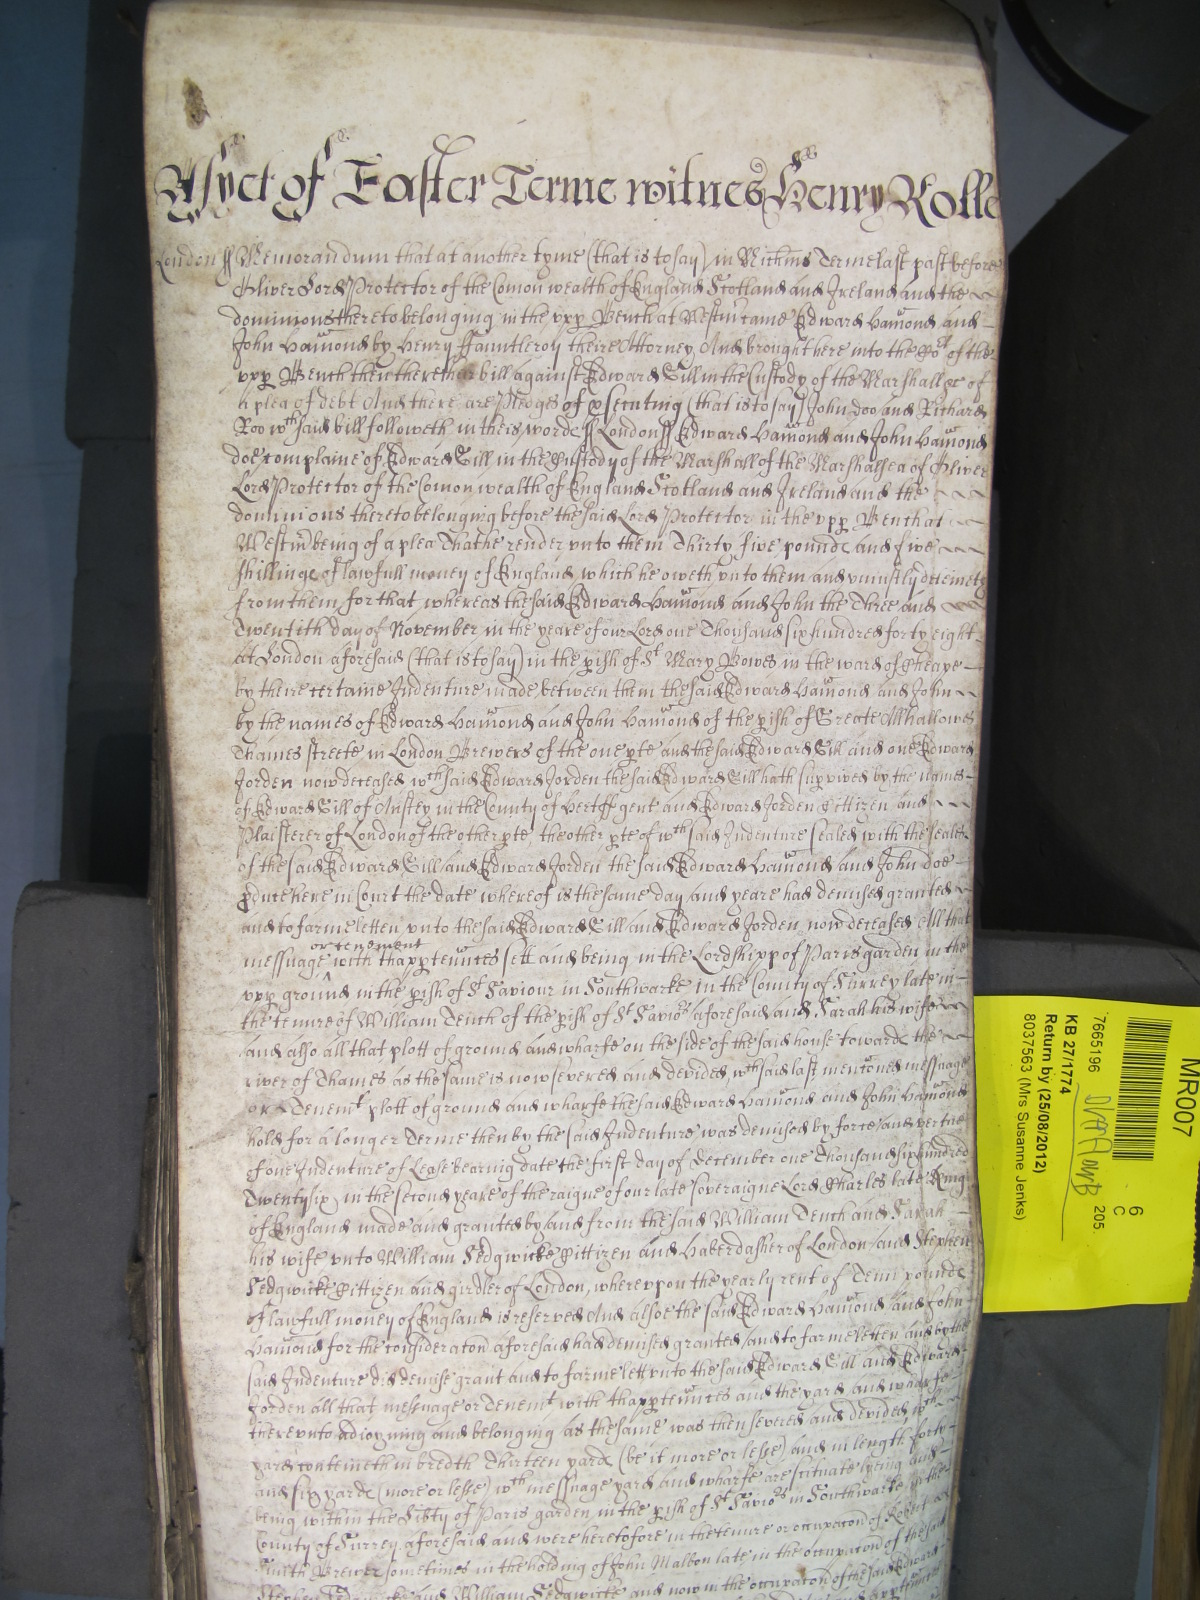 Asyet of Easter Terme witnes Henry Rolle
London ss Memorandum that at another tyme (that is to say) in Michis Terme last past before
Oliver Lord Protector of the Comon wealth of England Scotland and Ireland and the
dominions thereto belonging in the vpp Bench at Westm came Edward Hamond and
John Hamond by Henry ffauntleroy theire Attorney And brought here into the Cot of the
vpp Bench then there their bill against Edward Gill in the Custody of the Marshall &c of
a plea of debt And there are Pledges of psecuting (that is to say) John Doo and Richard
Roo wth said bill followeth in theis wordes ss London ss Edward Hamond and John Hamond
doe complaine of Edward Gill in the Custody of the Marshall of the Marshallsea of Oliver
Lord Protector of the Comon wealth of England Scotland and Ireland and the
dominions thereto belonging before the said Lord Protector in the vpp Bench at
Westm being of a plea That he render vnto them Thirty five pounds and five
shillings of lawfull money of England which he oweth vnto them and vniustly deteineth
from them for that whereas the said Edward Hamond and John the Three and
Twentith day of November in the yeare of our Lord one Thousand six hundred forty eight
at London aforesaid (that is to say) in the pish of St Mary Bowe in the ward of Cheape
by theire certaine Indenture made betweene them the said Edward Hamond and John
by the names of Edward Hamond and John Hamond of the pish of Greate Allhallowes
Thames streete in London Brewers of the one pte and the said Edward Gill and one Edward
Jorden now deceased wth said Edward Jorden the said Edward Gill hath survived by the names
of Edward Gill of Anstey in the County of Hertff gent and Edward Jorden Cittizen and
Plaisterer of London of the other pte the other pte of wth said Indenture sealed with the seales
of the said Edward Gill and Edward Jorden the said Edward Hamond and John doe
pduce here in Court the date whereof is the same day and yeare had demised granted
and to farme letten vnto the said Edward Gill and Edward Jorden now deceased All that
or tenement
messuage with thapptenucs sett and being in the Lordshipp of Paris garden in the
vpp ground in the pish of St Saviour in Southwarke in the County of Surrey late in
the tenure of William Tench of the pish of St Saviors aforesaid and Sarah his wife
And also all that plott of ground and wharfe on the side of the said house towards the
river of Thames as the same is now severed and devided wth said last mentoned messuage
or Tenemt plott of ground and wharfe the said Edward Hamond and John Hamond
hold for a longer Terme then by the said Indenture was demised by force and vertue
of one Indenture of Lease bearing date the first day of December one Thousand six hundred
Twenty six in the second yeare of the raigne of our late soveraigne Lord Charles late King
of England made and granted by and from the said William Tench and Sarah
his wife vnto William Sedgwicke Cittizen and Haberdasher of London and Stephen
Sedgwicke Cittizen and girdler of London, wherevpon the yearly rent of Tenn pounds
of lawfull money of England is reserved And alsoe the said Edward Hamond and John
Hamond for the consideraton aforesaid had demised granted and to farme letten and by the
said Indenture did demise grant and to farme lett vnto the said Edward Gill and Edward
Jorden all that messuage or Tenemt with thapptenucs and the yard and wharfe
therevnto adioyning and belonging as the same was then severed and devided wth
yard conteineth in bredth Thirteen yards (be it more or lesse) and in length forty
and six yards (more or lesse) wth messuage yard and wharfe are scituate lyeing and
being within the Libty of Paris garden in the pish of St Saviors in Southwarke in the
County of Surrey aforesaid and were heretofore in the tenure or occupaton of Robert
Smith Brewer sometimes in the holding of John Malbon late in the occupaton of the said
Stephen Sedgwicke and William Sedgwicke and now in the occupaton of the said Edward
MR007
6
C
205
7665196
KB 27/1774
Return by (25/08/2012)
8037563 (Mrs Susanne Jenks)